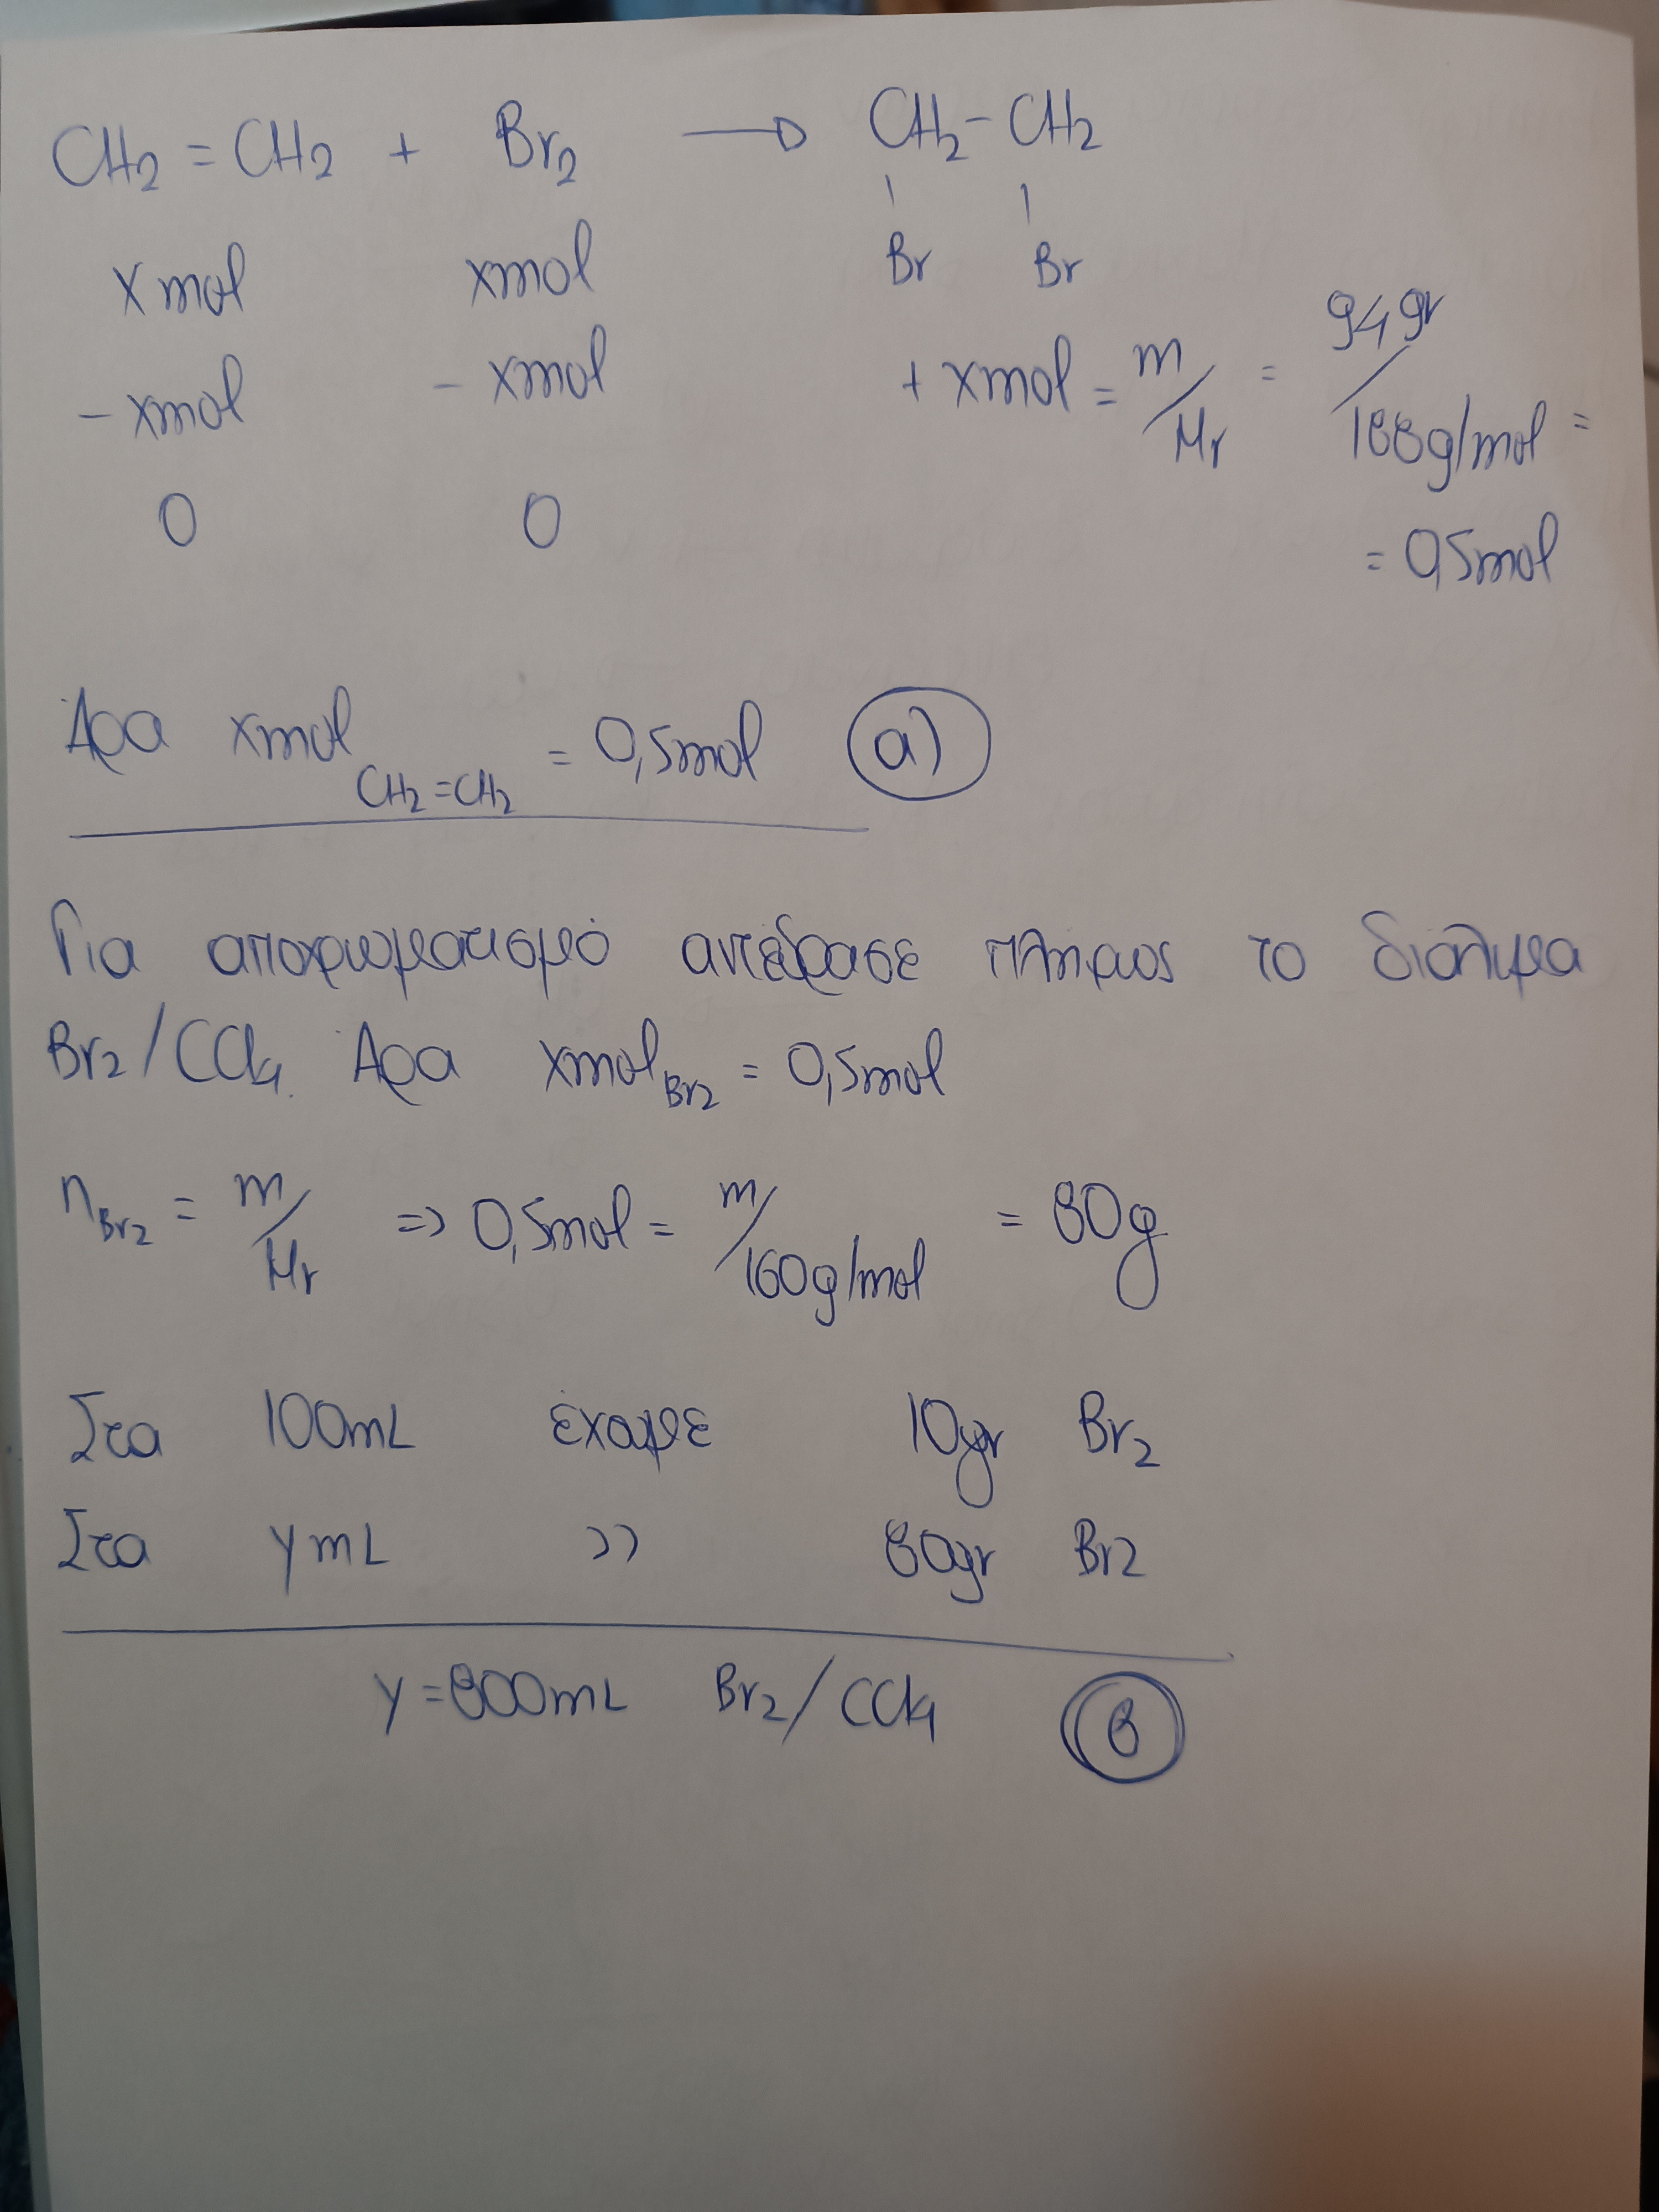 CH2 = CH2 + Br2 → CH2 - CH2
Br Br
xmol xmol
-xmol -xmol +xmol = m/Mr = 94gr/188g/mol =
0 0
= 0,5mol
Άρα xmol CH2=CH2 = 0,5mol α)
Για αποχρωματισμό αντέδρασε πλήρως το διάλυμα
Br2/CCl4. Άρα xmol Br2 = 0,5mol
nBr2 = m/Mr => 0,5mol = m/160g/mol = 80g
Στα 100mL έχουμε 10gr Br2
Στα ymL >> 80gr Br2
y = 800mL Br2/CCl4 β